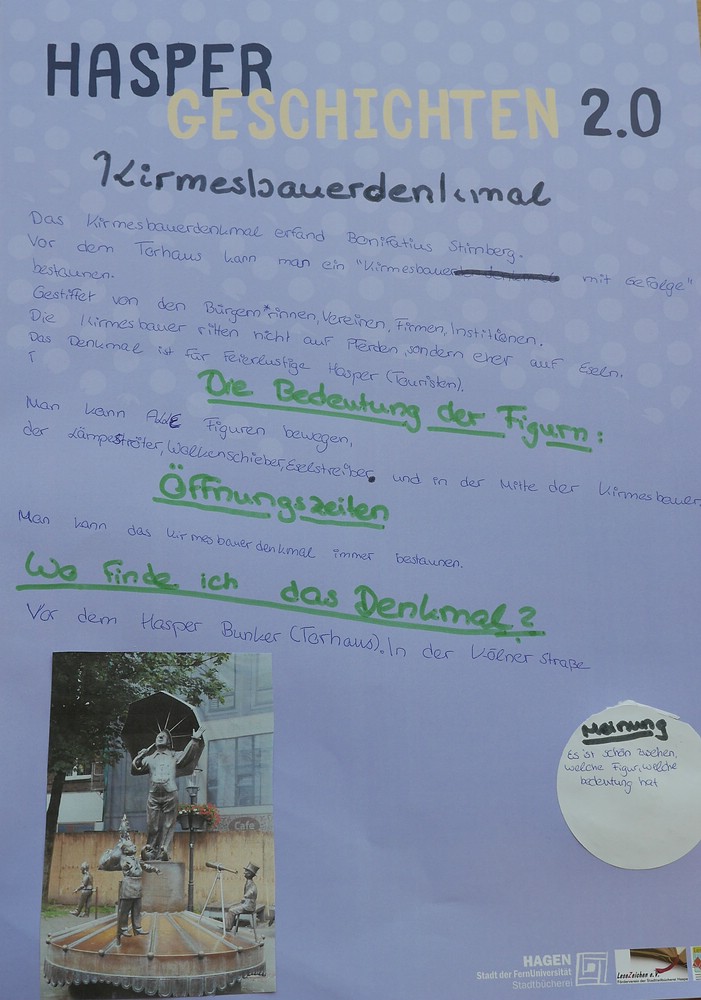 HASPER
GESCHICHTEN 2.0
Kirmesbauerdenkmal
Das Kirmesbauerdenkmal erfand Bonifatius Stirnberg.
Vor dem Torhaus kann man ein "Kirmesbauer mit Gefolge"
bestaunen.
Gestiftet von den Bürgern*rinnen, Vereinen, Firmen, Institionen.
Die Kirmesbauer ritten nicht auf Pferden, sondern eher auf Eseln.
Das Denkmal ist für Feierlustige Hasper (Touristen).
Die Bedeutung der Figurn:
Man kann ALLE Figuren bewegen,
der Lämpeströter, Wolkenschieber, Eselstreiber. und in der Mitte der Kirmesbauer.
Öffnungszeiten
Man kann das Kirmesbauerdenkmal immer bestaunen.
Wo finde ich das Denkmal?
Vor dem Hasper Bunker (Torhaus). In der Kölner Straße
Meinung
Es ist schön zusehen,
welche Figur, welche
bedeutung hat
Cafe
HAGEN
Stadt der FernUniversität
Stadtbücherei
LeseZeichen e.V.
Förderverein der Stadtteilbücherei Haspe